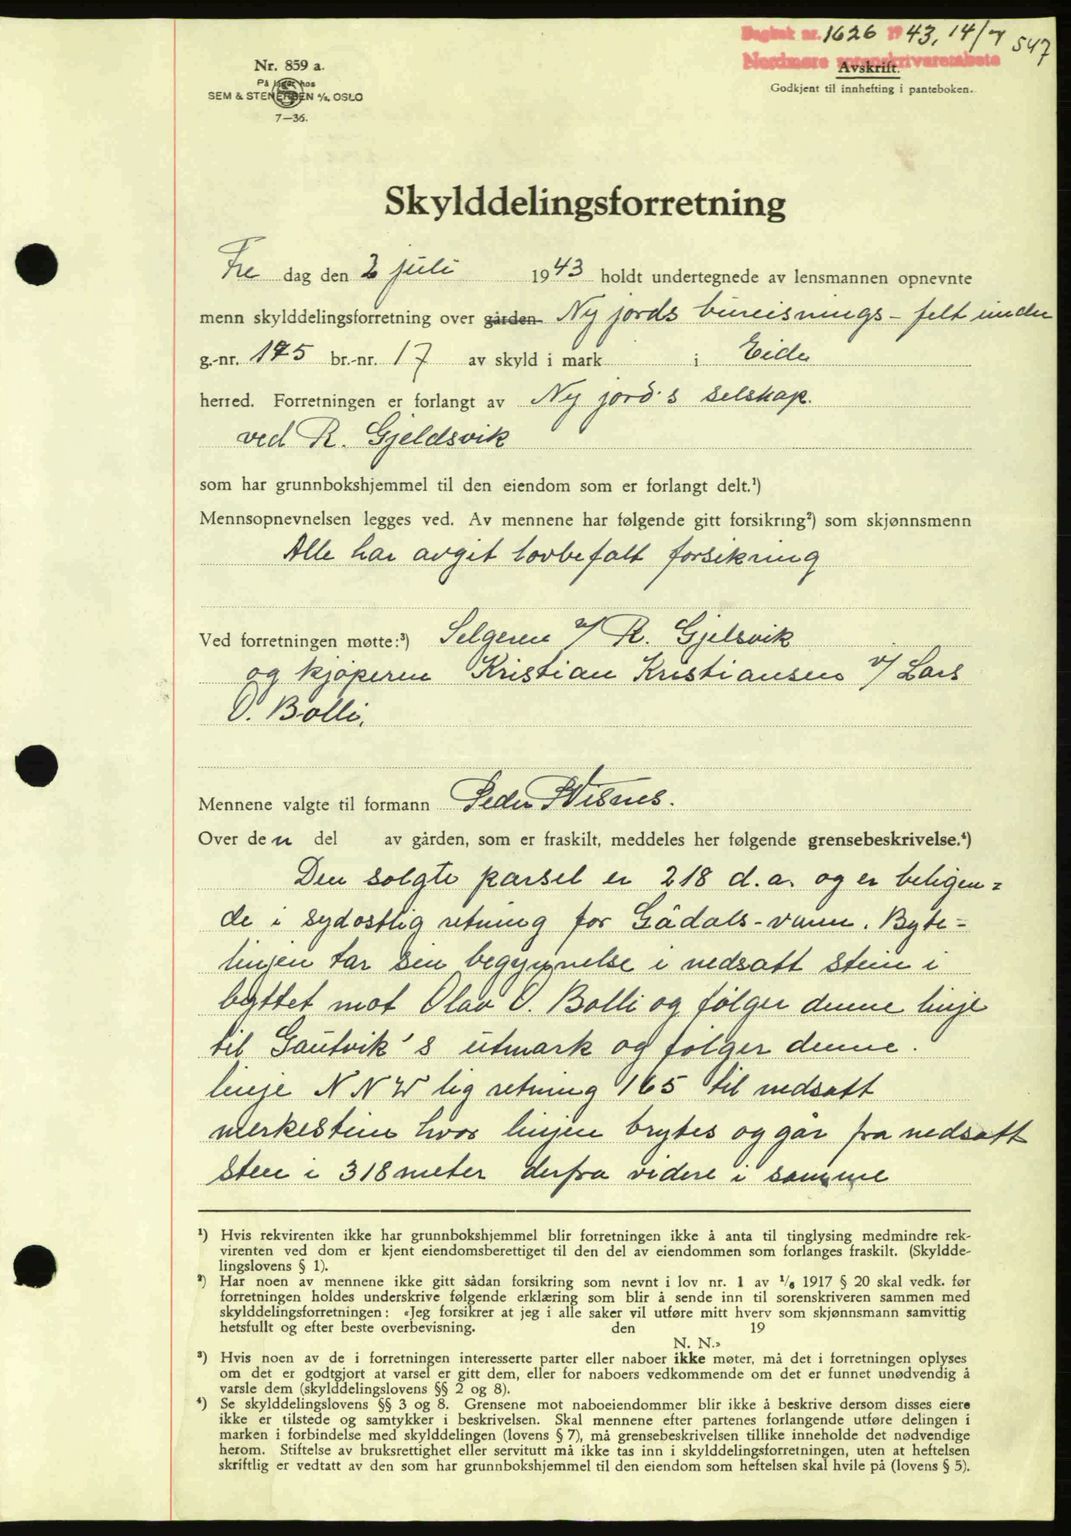 Dagbok nr. 1626 1943, 14/7 547
Nordmøre sorenskriverembete
Avskrift.
Godkjent til innhefting i panteboken.
Nr. 859 a.
På lager hos
SEM & STENERSEN A/S, OSLO
7—36.
Skylddelingsforretning
Fre dag den 2 juli 1943 holdt undertegnede av lensmannen opnevnte
menn skylddelingsforretning over gården Ny jords bureisnings-felt under
g.-nr. 175 br.-nr. 17 av skyld i mark i Eide
herred. Forretningen er forlangt av Ny jord's selskap.
ved R. Gjeldsvik
som har grunnbokshjemmel til den eiendom som er forlangt delt.¹)
Mennsopnevnelsen legges ved. Av mennene har følgende gitt forsikring²) som skjønnsmenn
Alle har avgit lovbefalt forsikring
Ved forretningen møtte:³) Selgeren v/ R. Gjelsvik
og kjøperen Kristian Kristiansen v/ Lars
O. Bolli.
Mennene valgte til formann Peder Visnes.
Over den del av gården, som er fraskilt, meddeles her følgende grensebeskrivelse.⁴)
Den solgte parsel er 218 d.a. og er beligen=
de i sydostlig retning for Gådals-vann. Byte=
linjen tar sin begynnelse i nedsatt stein i
byttet mot Olav O. Bolli og følger denne linje
til Gautvik's utmark og følger denne.
linje N N W lig retning 165 til nedsatt
merkestein hvor linjen brytes og går fra nedsatt
sten i 318 meter derfra videre i samme
¹) Hvis rekvirenten ikke har grunnbokshjemmel blir forretningen ikke å anta til tinglysing medmindre rek-
virenten ved dom er kjent eiendomsberettiget til den del av eiendommen som forlanges fraskilt. (Skyldde-
lingslovens § 1).
²) Har noen av mennene ikke gitt sådan forsikring som nevnt i lov nr. 1 av ¹/₆ 1917 § 20 skal vedk. før
forretningen holdes underskrive følgende erklæring som blir å sende inn til sorenskriveren sammen med
skylddelingsforretningen: «Jeg forsikrer at jeg i alle saker vil utføre mitt hverv som skjønnsmann samvittig
hetsfullt og efter beste overbevisning. den 19
N. N.»
³) Hvis noen av de i forretningen interesserte parter eller naboer ikke møter, må det i forretningen oplyses
om det er godtgjort at varsel er gitt dem, eller for naboers vedkommende om det er funnet unødvendig å
varsle dem (skylddelingslovens §§ 2 og 8).
⁴) Se skylddelingslovens §§ 3 og 8. Grensene mot naboeiendommer blir ikke å beskrive dersom disses eiere
ikke er tilstede og samtykker i beskrivelsen. Skal mennene efter partenes forlangende utføre delingen i
marken i forbindelse med skylddelingen (lovens § 7), må grensebeskrivelsen tillike inneholde det nødvendige
herom. Stiftelse av bruksrettighet eller servitutt må ikke tas inn i skylddelingsforretningen, uten at heftelsen
skriftlig er vedtatt av den som har grunnbokshjemmel til den eiendom som heftelsen skal hvile på (lovens § 5).